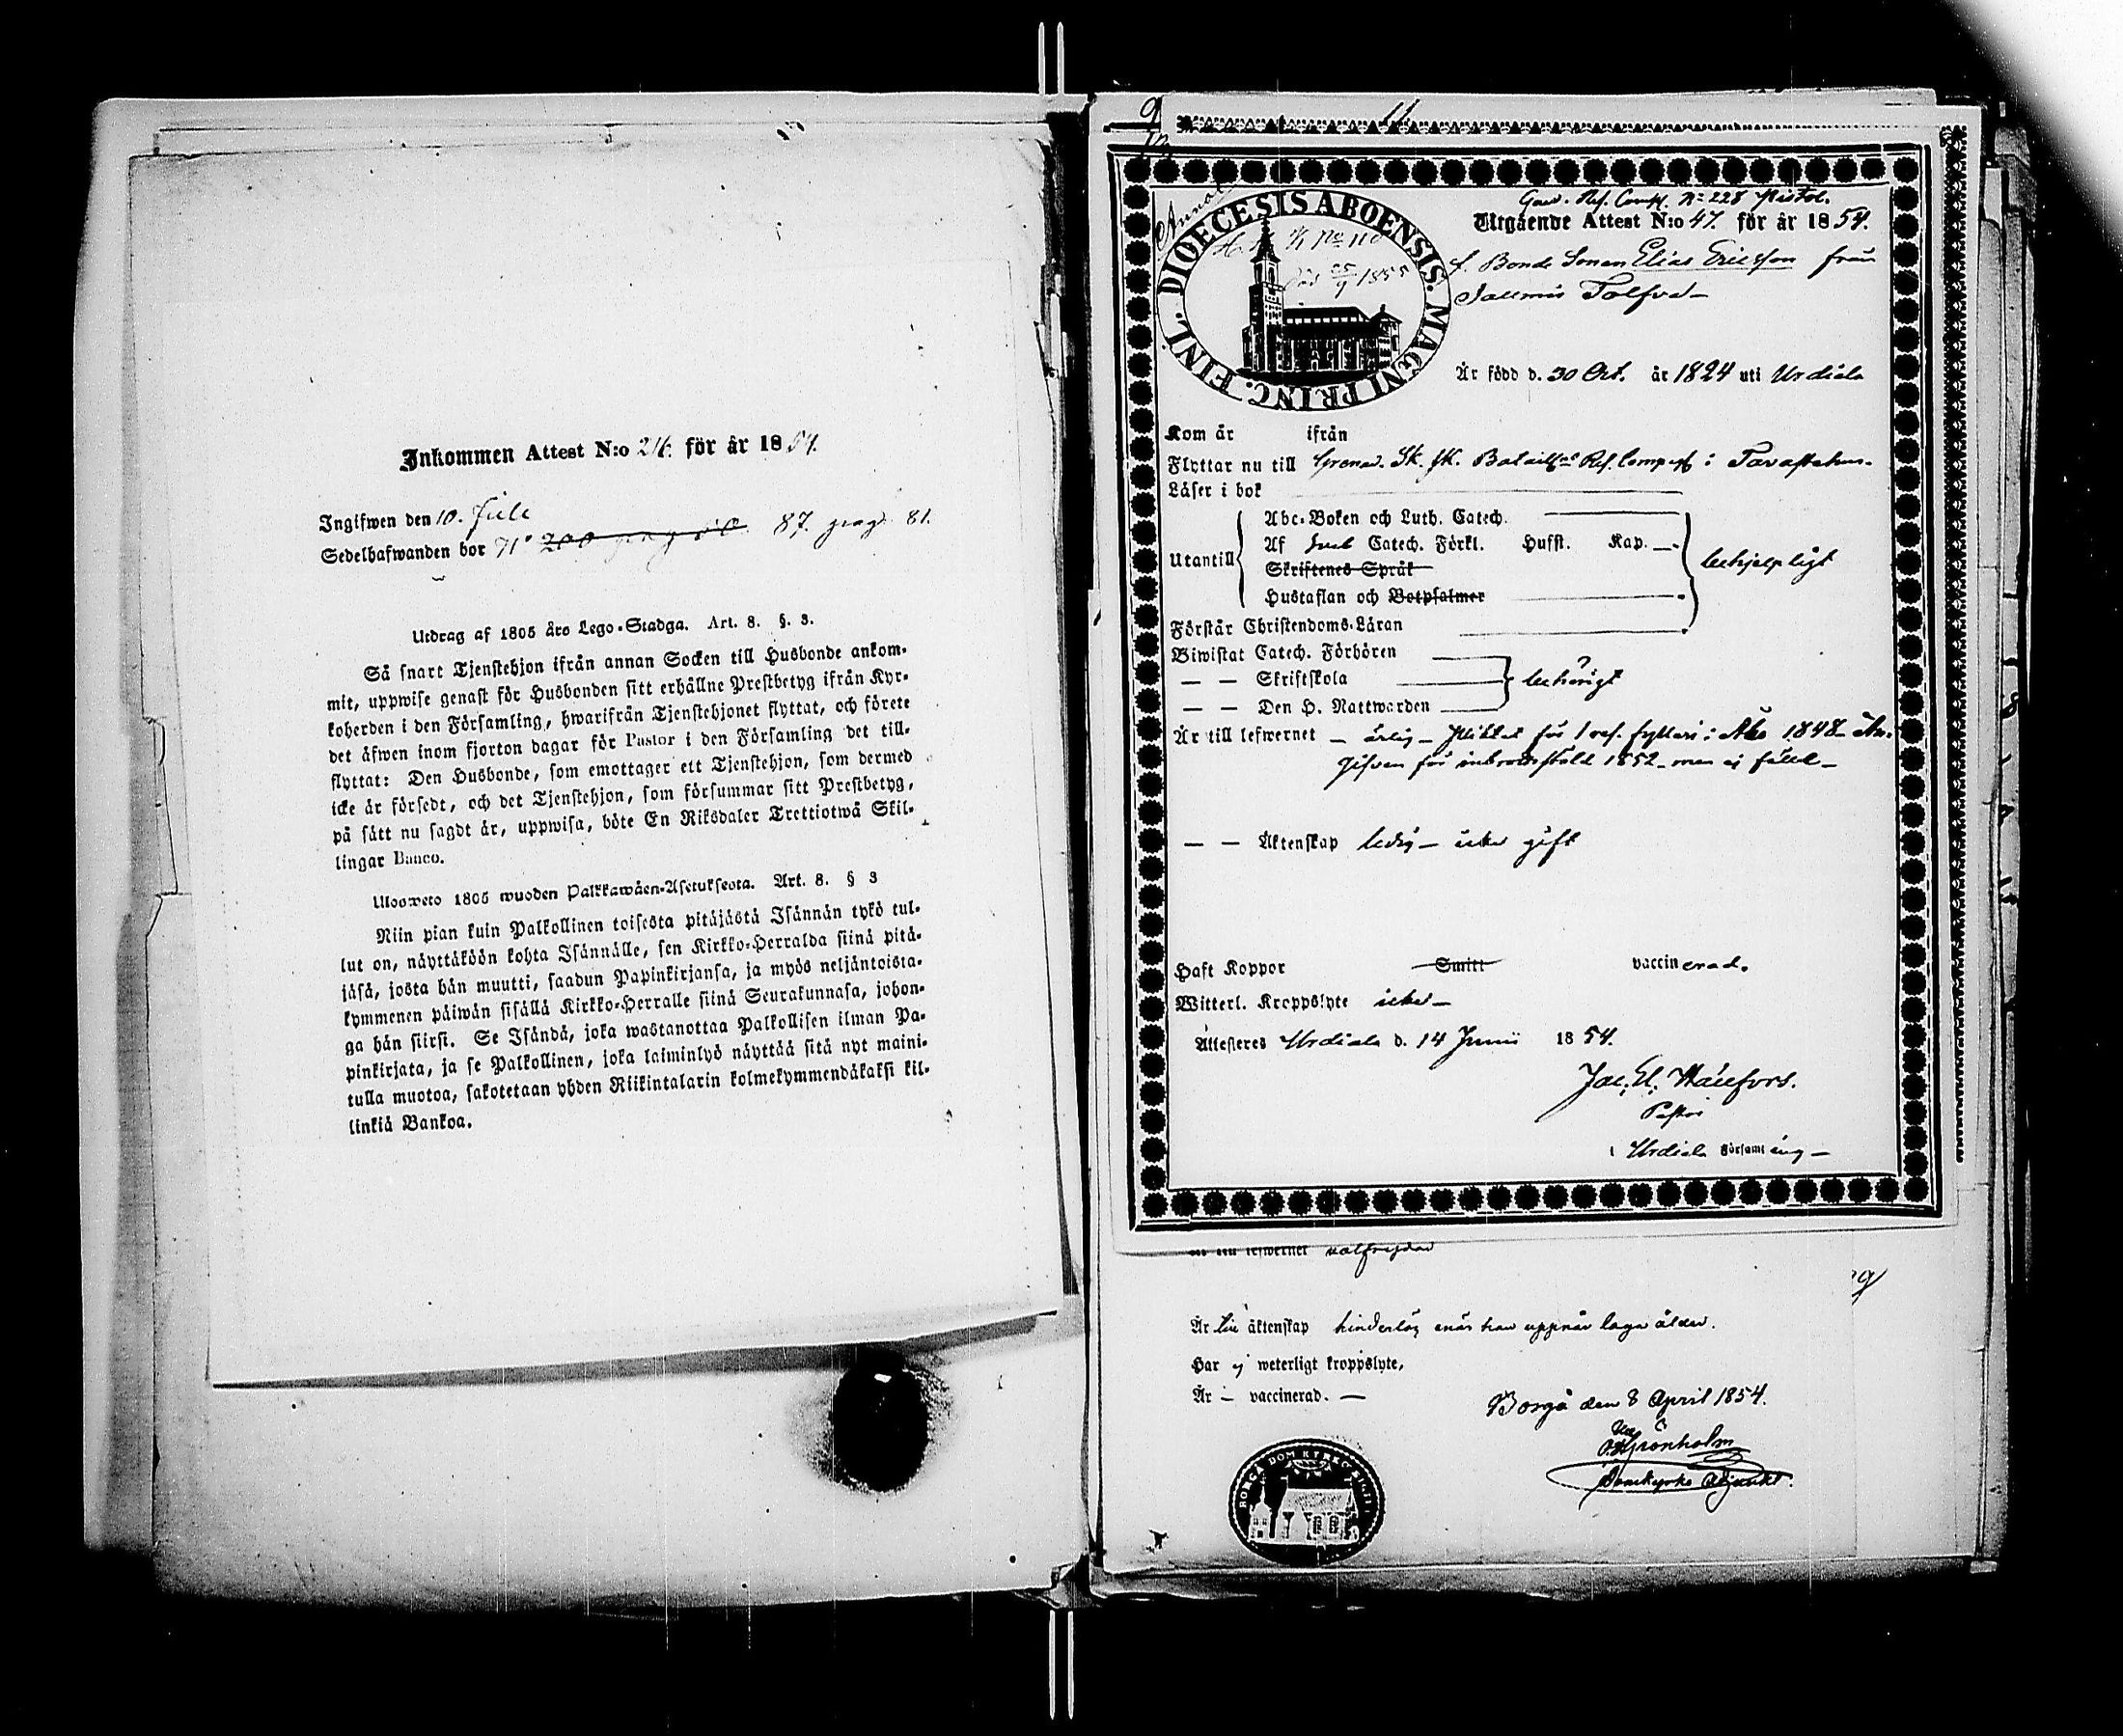 Inkommen Attest N:o 24 för år 1854.
Ingifwen den 10. Juli
Sedelhafwanden bor N° 200 pag 87. pag 81.
Utdrag af 1805 års Lego-Stadga. Art. 8. §. 3.
Så snart Tjenstehjon ifrån annan Socken till Husbonde ankom-
mit, uppwise genast för Husbonden sitt erhållne Prestbetyg ifrån Kyr-
koherden i den Församling, hwarifrån Tjenstehjonet flyttat, och förete
det äfwen inom fjorton dagar för Pastor i den Församling det till-
flyttat: Den Husbonde, som emottager ett Tjenstehjon, som dermed
icke är försedt, och det Tjenstehjon, som försummar sitt Prestbetyg,
på sätt nu sagdt är, uppwisa, böte En Riksdaler Trettiotwå Skil-
lingar Banco.
Ulosweto 1805 wuoden Palkkawäen-Asetuksesta. Art. 8. § 3
Niin pian kuin Palkollinen toisesta pitäjästä Isännän tykö tul-
lut on, näyttäköön kohta Isännälle, sen Kirkko-Herralda siinä pitä-
jäsä, josta hän muutti, saadun Papinkirjansa, ja myös neljäntoista-
kymmenen päiwän sisällä Kirkko-Herralle siinä Seurakunnasa, johon-
ga hän siirsi. Se Isändä, joka wastanottaa Palkollisen ilman Pa-
pinkirjata, ja se Palkollinen, joka laiminlyö näyttää sitä nyt maini-
tulla muotoa, sakotetaan yhden Riikintalarin kolmekymmendäkaksi kil-
linkiä Bankoa.
9
11
DIOECESIS ABOENSIS. MAGNI PRINC. FINL.
1855
N° 228
Utgående Attest N:o 47. för år 1854.
f. Bonde Sonen Elias Ericsson från
Är född d. 30 Oct. år 1824 uti Urdiala
Kom år ifrån
Flyttar nu till Grenad. Sk. Comp i Tavastehus.
Läser i bok
Utantill
Abc-Boken och Luth. Catech.
Af Catech. Förkl. Husst. Kap.
Skriftenes Språk
Hustaflan och Botpsalmer
behjelpligt
Förstår Christendoms-Läran
Biwistat Catech. Förhören
— — Skriftskola
— — Den H. Nattwarden
behörigt
Är till lefwernet — ärlig — pliktat för 1 res. fylleri i Åbo 1848 – An-
gifven för inbrottsstöld 1852 – men ej fälld –
— — Äktenskap ledig – icke gift
Haft Koppor Smitt vaccinerad.
Witterl. Kroppslyte icke –
Attesteres Urdiala d. 14 Junii 1854.
Pastor
i Urdiala Församling –
lefwernet välfrejdad
Är till äktenskap hinderlös enär han uppnår laga ålder.
Har ej weterligt kroppslyte,
Är – vaccinerad. —
Borgå den 8 April 1854.
Grönholm
Domkyrko Adjunkt.
BORGÅ DOMKYRKO SIGILL